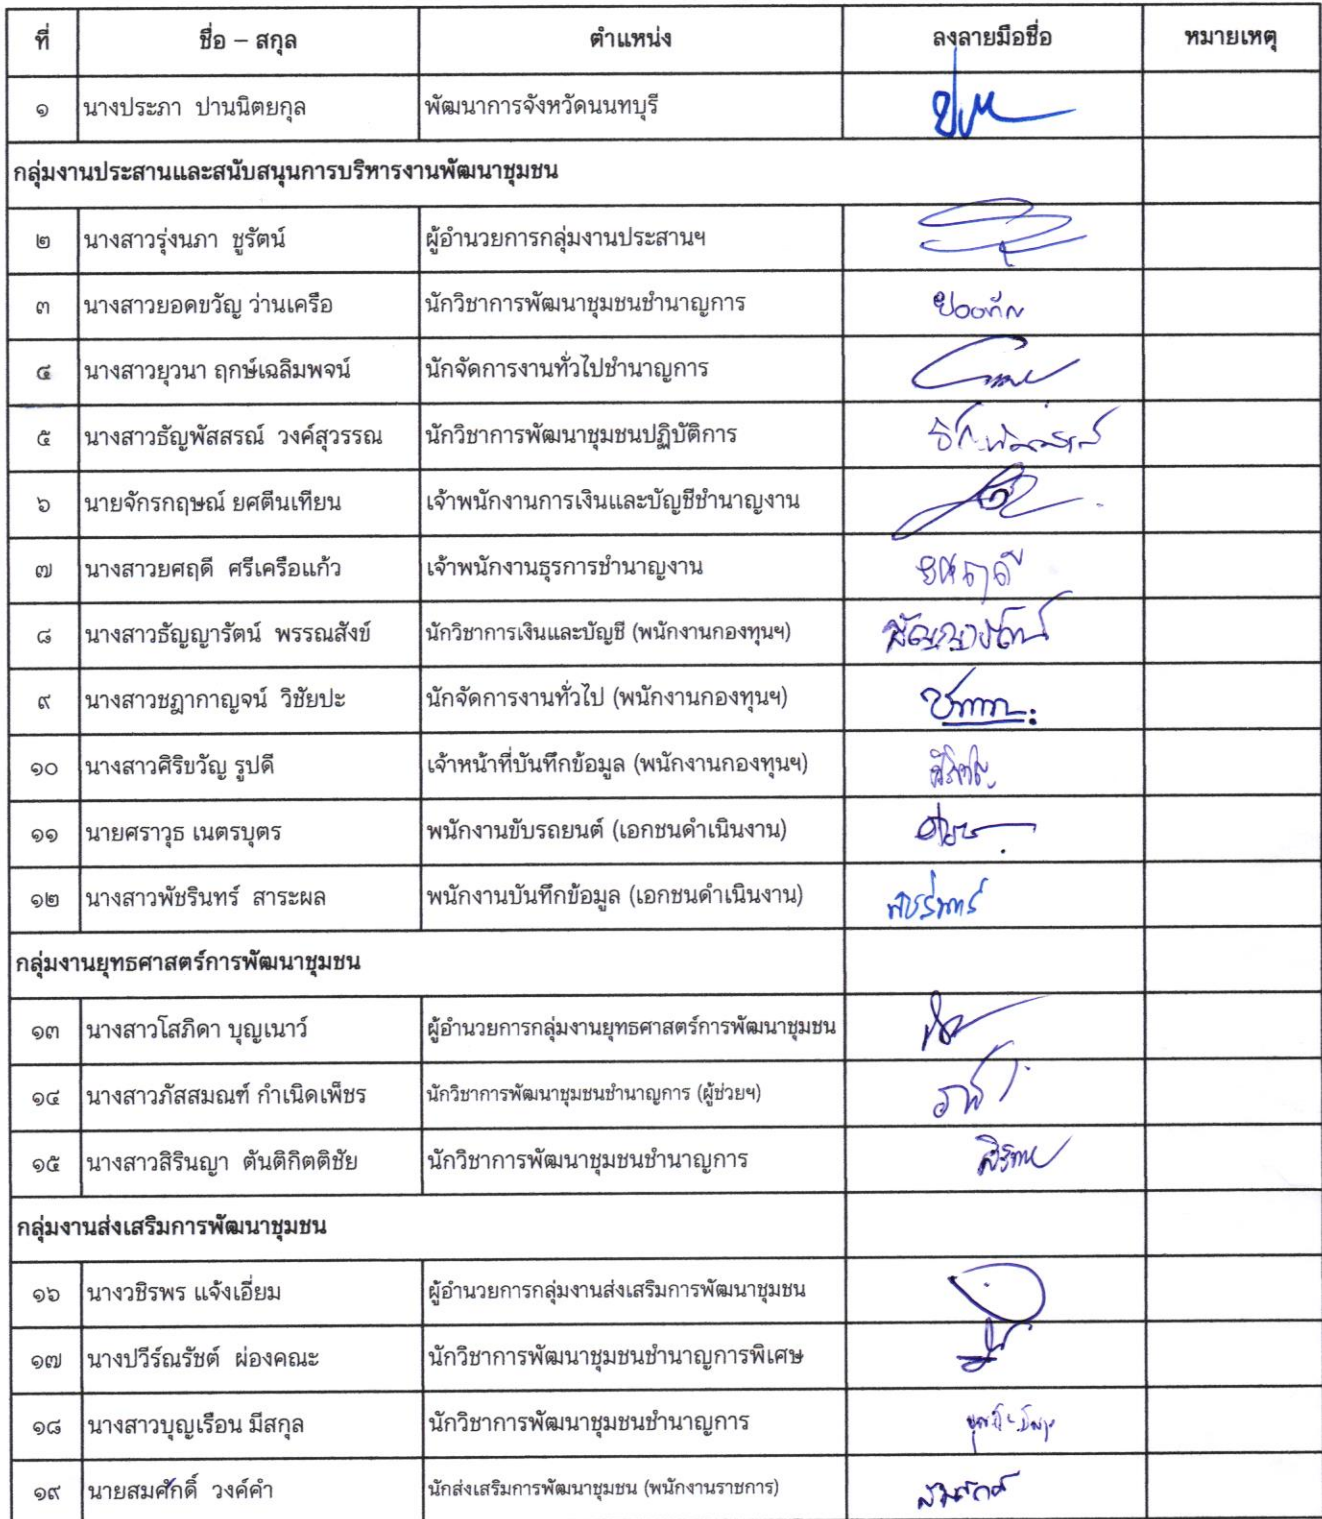 ที่ ชื่อ – สกุล ตำแหน่ง ลงลายมือชื่อ หมายเหตุ
๑ นางประภา ปานนิตยกุล พัฒนาการจังหวัดนนทบุรี
กลุ่มงานประสานและสนับสนุนการบริหารงานพัฒนาชุมชน
๒ นางสาวรุ่งนภา ชูรัตน์ ผู้อำนวยการกลุ่มงานประสานฯ
๓ นางสาวยอดขวัญ ว่านเครือ นักวิชาการพัฒนาชุมชนชำนาญการ
๔ นางสาวยุวนา ฤกษ์เฉลิมพจน์ นักจัดการงานทั่วไปชำนาญการ
๕ นางสาวธัญพัสสรณ์ วงค์สุวรรณ นักวิชาการพัฒนาชุมชนปฏิบัติการ
๖ นายจักรกฤษณ์ ยศตีนเทียน เจ้าพนักงานการเงินและบัญชีชำนาญงาน
๗ นางสาวยศฤดี ศรีเครือแก้ว เจ้าพนักงานธุรการชำนาญงาน ยศฤดี
๘ นางสาวธัญญารัตน์ พรรณสังข์ นักวิชาการเงินและบัญชี (พนักงานกองทุนฯ) ธัญญารัตน์
๙ นางสาวชฎากาญจน์ วิชัยปะ นักจัดการงานทั่วไป (พนักงานกองทุนฯ)
๑๐ นางสาวศิริขวัญ รูปดี เจ้าหน้าที่บันทึกข้อมูล (พนักงานกองทุนฯ)
๑๑ นายศราวุธ เนตรบุตร พนักงานขับรถยนต์ (เอกชนดำเนินงาน)
๑๒ นางสาวพัชรินทร์ สาระผล พนักงานบันทึกข้อมูล (เอกชนดำเนินงาน) พัชรินทร์
กลุ่มงานยุทธศาสตร์การพัฒนาชุมชน
๑๓ นางสาวโสภิดา บุญเนาว์ ผู้อำนวยการกลุ่มงานยุทธศาสตร์การพัฒนาชุมชน
๑๔ นางสาวภัสสมณฑ์ กำเนิดเพ็ชร นักวิชาการพัฒนาชุมชนชำนาญการ (ผู้ช่วยฯ)
๑๕ นางสาวสิรินญา ตันติกิตติชัย นักวิชาการพัฒนาชุมชนชำนาญการ
กลุ่มงานส่งเสริมการพัฒนาชุมชน
๑๖ นางวชิรพร แจ้งเอี่ยม ผู้อำนวยการกลุ่มงานส่งเสริมการพัฒนาชุมชน
๑๗ นางปวีร์ณรัชต์ ผ่องคณะ นักวิชาการพัฒนาชุมชนชำนาญการพิเศษ
๑๘ นางสาวบุญเรือน มีสกุล นักวิชาการพัฒนาชุมชนชำนาญการ
๑๙ นายสมศักดิ์ วงค์คำ นักส่งเสริมการพัฒนาชุมชน (พนักงานราชการ) สมศักดิ์